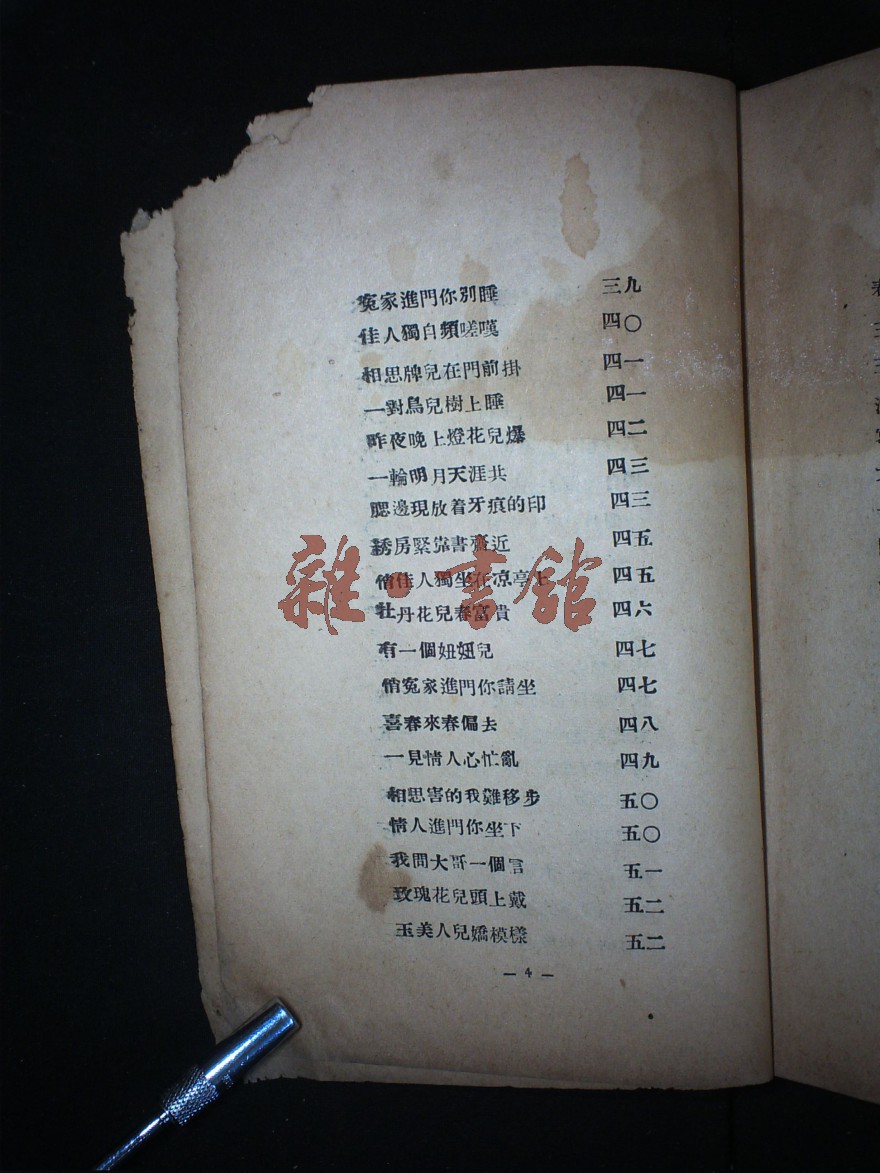 冤家進門你別睡 三九
佳人獨自頻嗟嘆 四〇
相思牌兒在門前掛 四一
一對鳥兒樹上睡 四一
昨夜晚上燈花兒爆 四二
一輪明月天涯共 四三
腮邊現放着牙痕的印 四三
綉房緊靠書齋近 四五
俏佳人獨坐在凉亭上 四五
牡丹花兒春富貴 四六
有一個妞妞兒 四七
俏冤家進門你請坐 四七
喜春來春偏去 四八
一見情人心忙亂 四九
相思害的我難移步 五〇
情人進門你坐下 五〇
我問大哥一個言 五一
玫瑰花兒頭上戴 五二
玉美人兒嬌模樣 五二
— 4 —
雜·書館